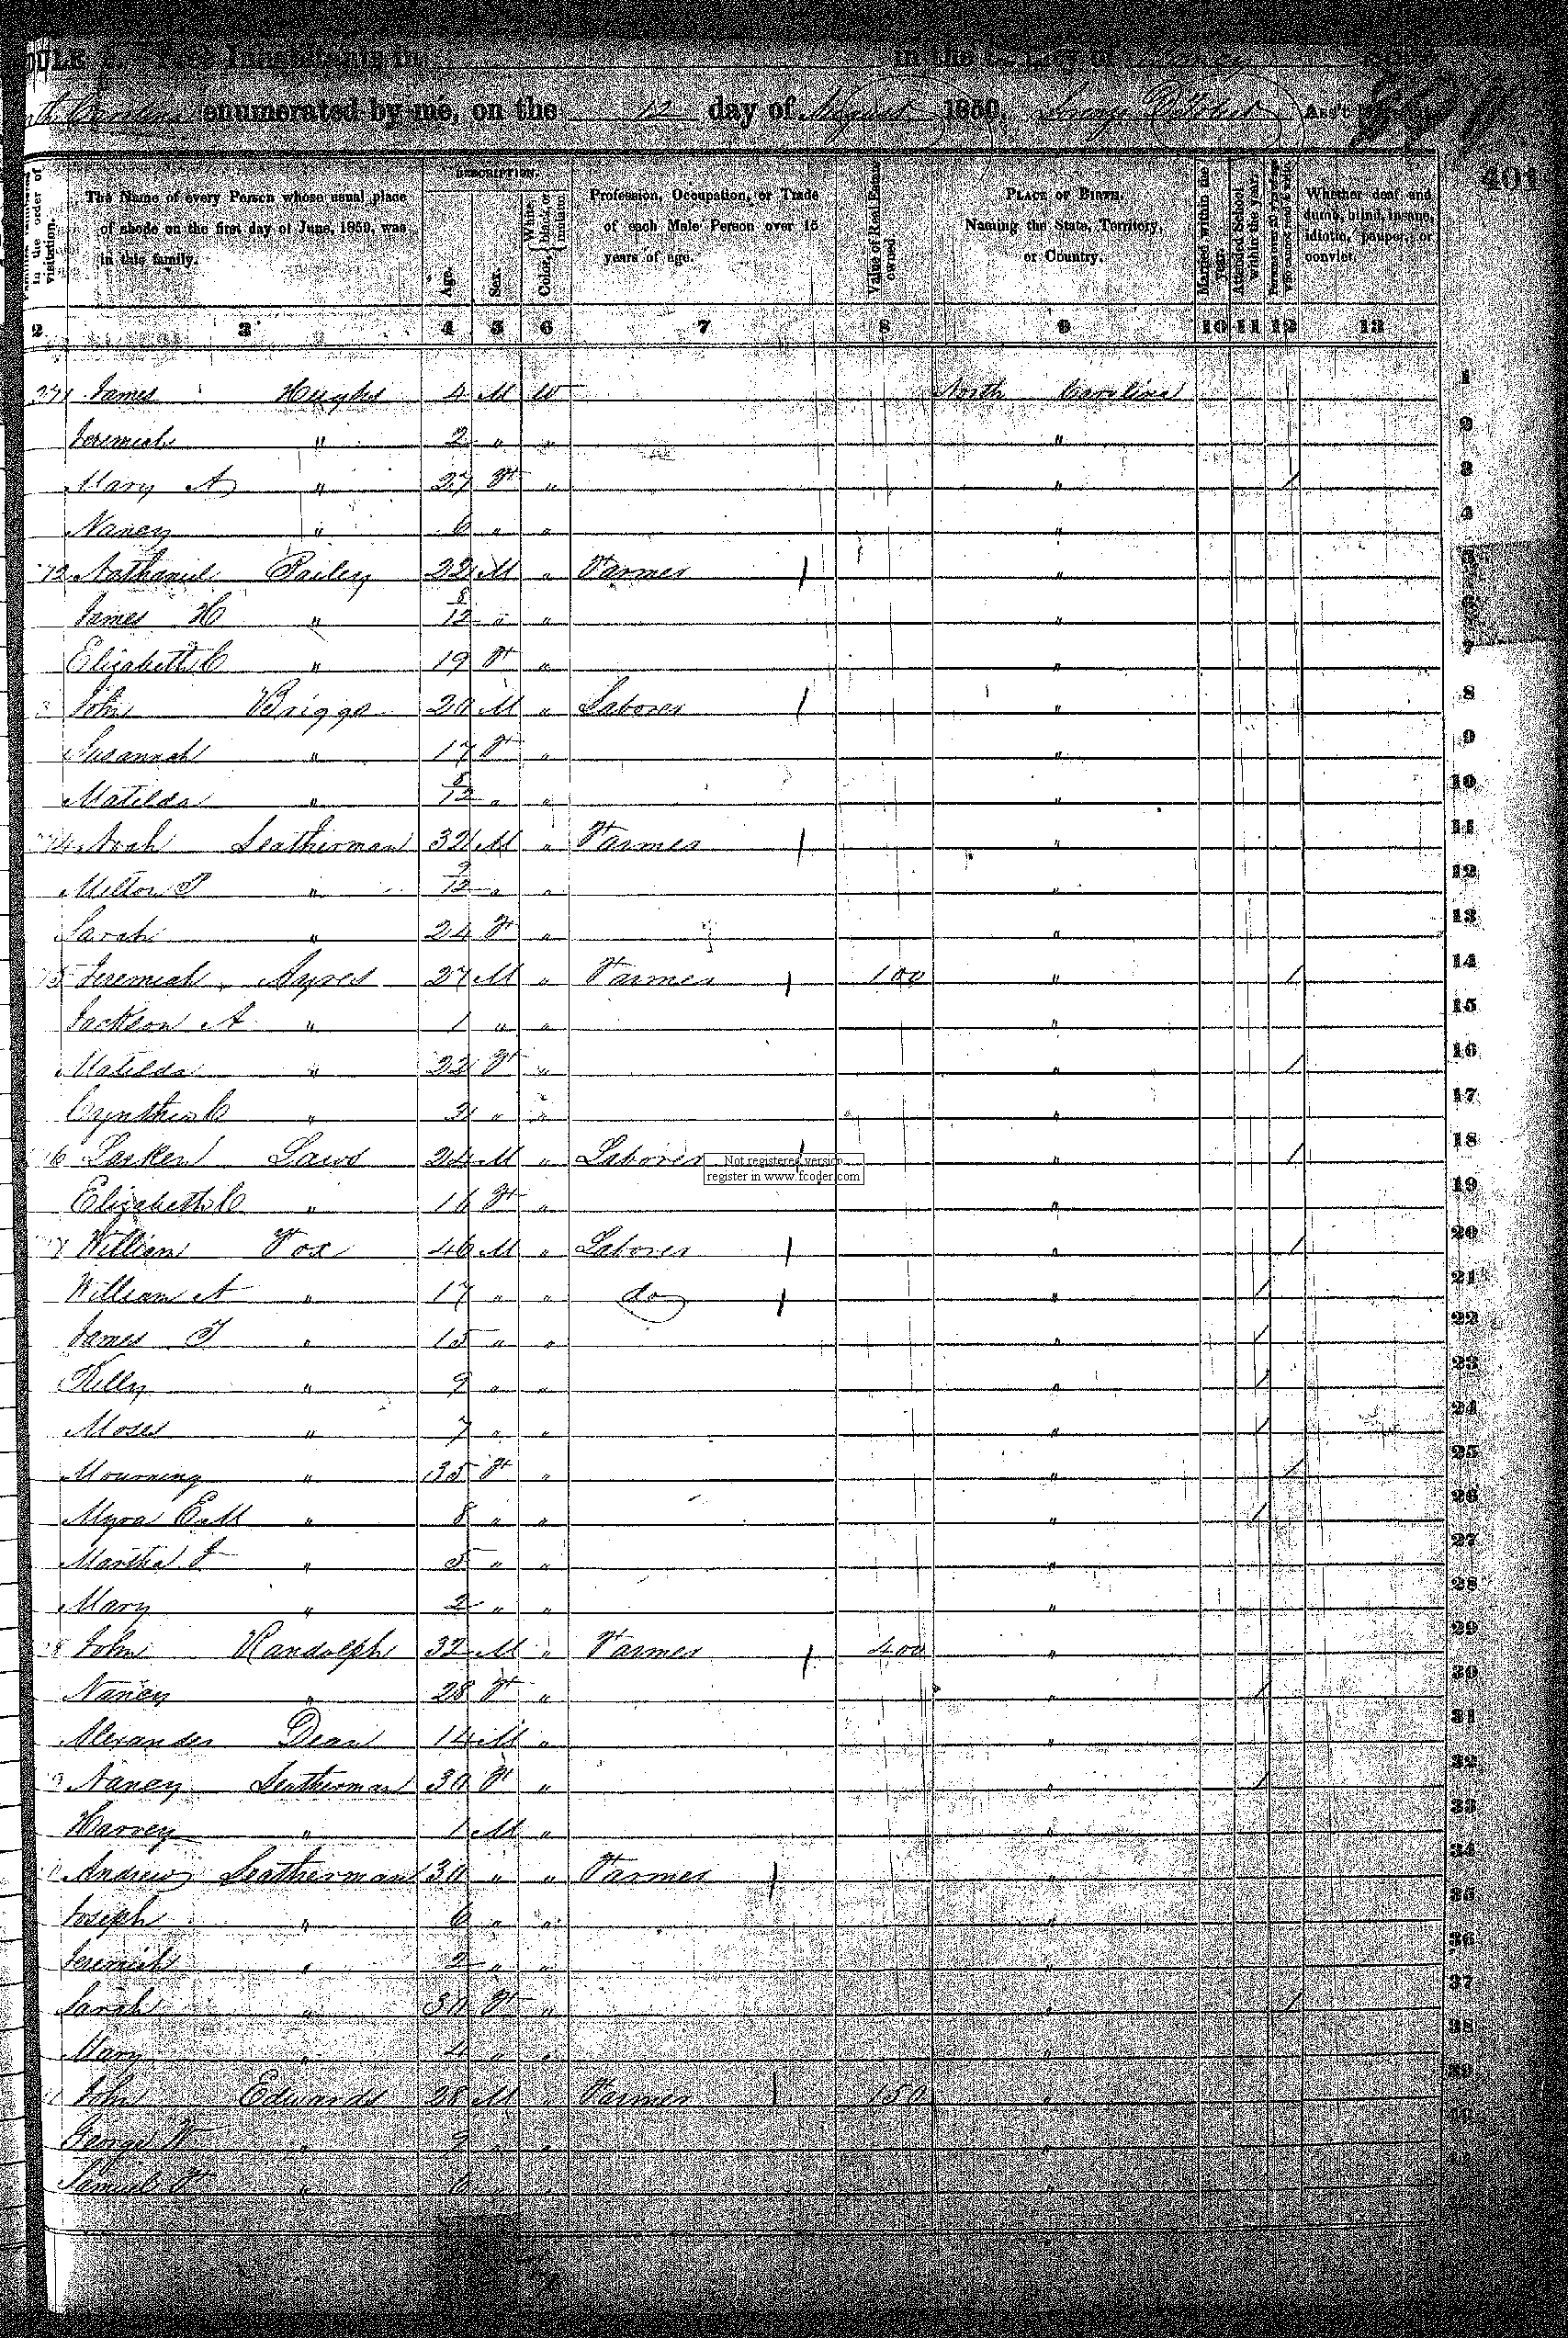 DULE I.—Free Inhabitants in in the County of Yancey
enumerated by me, on the 12 day of August 1850. Ass't
401
DESCRIPTION.
The Name of every Person whose usual place of abode on the first day of June, 1850, was in this family.
in the order of visitation.
Age.
Sex.
Color, White, black, or mulatto
Profession, Occupation, or Trade of each Male Person over 15 years of age.
Value of Real Estate owned
PLACE OF BIRTH. Naming the State, Territory, or Country.
Married within the year.
Attended School within the year.
Whether deaf and dumb, blind, insane, idiotic, pauper, or convict.
2 3 4 5 6 7 8 9 10 11 12 13
271 James Hughes 4 M W North Carolina 1
Jeremiah " 2 " " " 2
Mary A " 27 F " " / 3
Nancy " 6 " " " 4
72 Nathaniel Bailey 22 M " Farmer " 5
James H " 8/12 " " " 6
Elizabeth C " 19 F " " 7
3 John Briggs 20 M " Laborer " 8
Susannah " 17 F " " 9
Matilda " 5/12 " " " 10
74 Noah Leatherman 32 M " Farmer " 11
Milton P " 9/12 " " " 12
Sarah " 24 F " " 13
75 Jeremiah Ayres 27 M " Farmer 100 " / 14
Jackson A " 1 " " " 15
Matilda " 22 F " " / 16
Cynthia C " 3 " " " 17
76 Larken Laws 24 M " Laborer " / 18
Not registered version
register in www.fcoder.com
Elizabeth C " 16 F " " 19
77 William Fox 46 M " Laborer " / 20
William A " 17 " " do " / 21
James T " 15 " " " / 22
Killy " 9 " " " / 23
Moses " 7 " " " / 24
Mourning " 35 F " " / 25
Myra E M " 8 " " " / 26
Martha J " 5 " " " 27
Mary " 2 " " " 28
78 John Randolph 32 M " Farmer 400 " 29
Nancy " 28 F " " / 30
Alexander Dean 14 M " " 31
9 Nancy Leatherman 30 F " " / 32
Harvey " 1 M " " 33
Andrew Leatherman 30 " " Farmer " 34
Joseph " 6 " " " 35
Jeremiah " 2 " " " 36
Sarah " 30 F " " / 37
Mary " 4 " " " 38
John Edwards 28 M " Farmer 150 " 39
George W " 9 " " "
Samuel F " 6 " " "